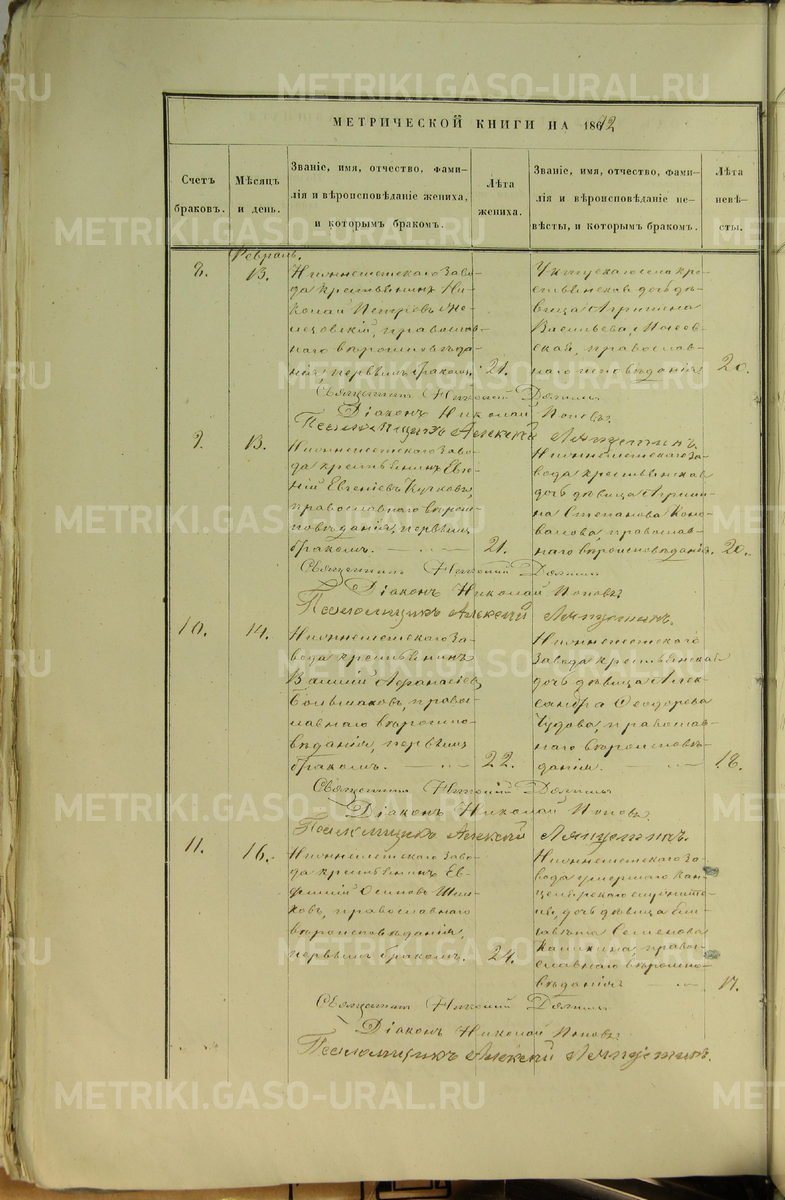 МЕТРИЧЕСКОЙ КНИГИ НА 1872
Счетъ
браковъ.
Мѣсяцъ
и день.
Званіе, имя, отчество, фами-
лія и вѣроисповѣданіе жениха,
и которымъ бракомъ.
Лѣта
жениха.
Званіе, имя, отчество, фами-
лія и вѣроисповѣданіе не-
вѣсты, и которымъ бракомъ.
Лѣта
невѣ-
сты.
Февраль.
8.
13.
Нижнеисетскаго Заво-
да крестьянинъ Ни-
колай Петровъ
православ-
наго вѣроисповѣда-
нія, первымъ бракомъ.
21.
Уктусскаго села кре-
стьянская дочь дѣ-
вица Агрипина
Васильева
православ-
наго исповѣданія
20.
Священникъ
Діаконъ Николай Поповъ.
Псаломщикъ Алексѣй
9.
13.
Нижнеисетскаго Заво-
да крестьянинъ Евге-
ній Евгеніевъ Кучковъ,
православнаго вѣроис-
повѣданія, первымъ
бракомъ.
21.
Нижнеисетскаго За-
вода крестьянская
дочь дѣвица Агрипи-
на Степанова Коно-
валова, православ-
наго вѣроисповѣданія.
20.
Священникъ
Діаконъ Николай Поповъ
Псаломщикъ Алексѣй
10.
14.
Нижнеисетскаго За-
вода крестьянинъ
Василій Афанасіевъ
Большаковъ, право-
славнаго вѣроиспо-
вѣданія, первымъ
бракомъ.
22.
Нижнеисетскаго
Завода крестьянская
дочь дѣвица Алек-
сандра Ѳеодорова
Чудова, православ-
наго вѣроисповѣ-
данія.
18.
Священникъ
Діаконъ Николай Поповъ.
Псаломщикъ Алексѣй
11.
16.
Нижнеисетскаго Заво-
да крестьянинъ Ев-
фимій Осиповъ
православнаго
вѣроисповѣданія,
первымъ бракомъ.
24.
Нижнеисетскаго За-
вода умершаго кан-
целярскаго служите-
ля, дочь дѣвица Ели-
завета Семенова
Калинина, право-
славнаго вѣроиспо-
вѣданія
17.
Священникъ
Діаконъ Николай Поповъ
Псаломщикъ Алексѣй
METRIKI.GASO-URAL.RU